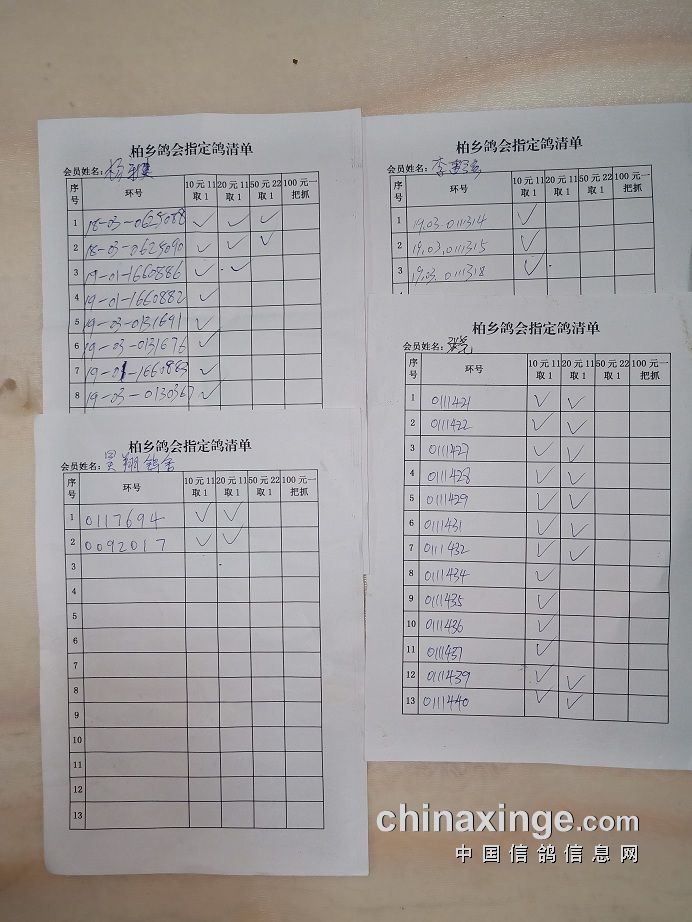 柏乡鸽会指定鸽清单
会员姓名:杨
序号 环号 10元11取1 20元11取1 50元22取1 100元一把抓
1 18-03-0625088 ✓ ✓ ✓
2 18-03-0625090 ✓ ✓ ✓
3 19-01-1660886 ✓ ✓
4 19-01-1660882 ✓
5 19-03-0131691 ✓
6 19-03-0131676 ✓
7 19-01-1660863 ✓
8 19-03-0130367 ✓
柏乡鸽会指定鸽清单
会员姓名:李
序号 环号 10元11取1 20元11取1 50元22取1 100元一把抓
1 19.03.0111314 ✓
2 19.03.0111315 ✓
3 19.03.0111318 ✓
柏乡鸽会指定鸽清单
会员姓名:昊翔鸽舍
序号 环号 10元11取1 20元11取1 50元22取1 100元一把抓
1 0117694 ✓ ✓
2 0092017 ✓ ✓
3
4
5
6
7
8
9
10
11
12
13
柏乡鸽会指定鸽清单
会员姓名:
序号 环号 10元11取1 20元11取1 50元22取1 100元一把抓
1 0111421 ✓ ✓
2 0111422 ✓ ✓
3 0111427 ✓ ✓
4 0111428 ✓ ✓
5 0111429 ✓ ✓
6 0111431 ✓ ✓
7 0111432 ✓ ✓
8 0111434 ✓
9 0111435 ✓
10 0111436 ✓
11 0111437 ✓
12 0111439 ✓ ✓
13 0111440 ✓ ✓
chinaxinge.com
中国信鸽信息网